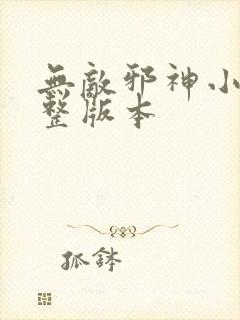 無敵邪神小
整版本
狐鉢